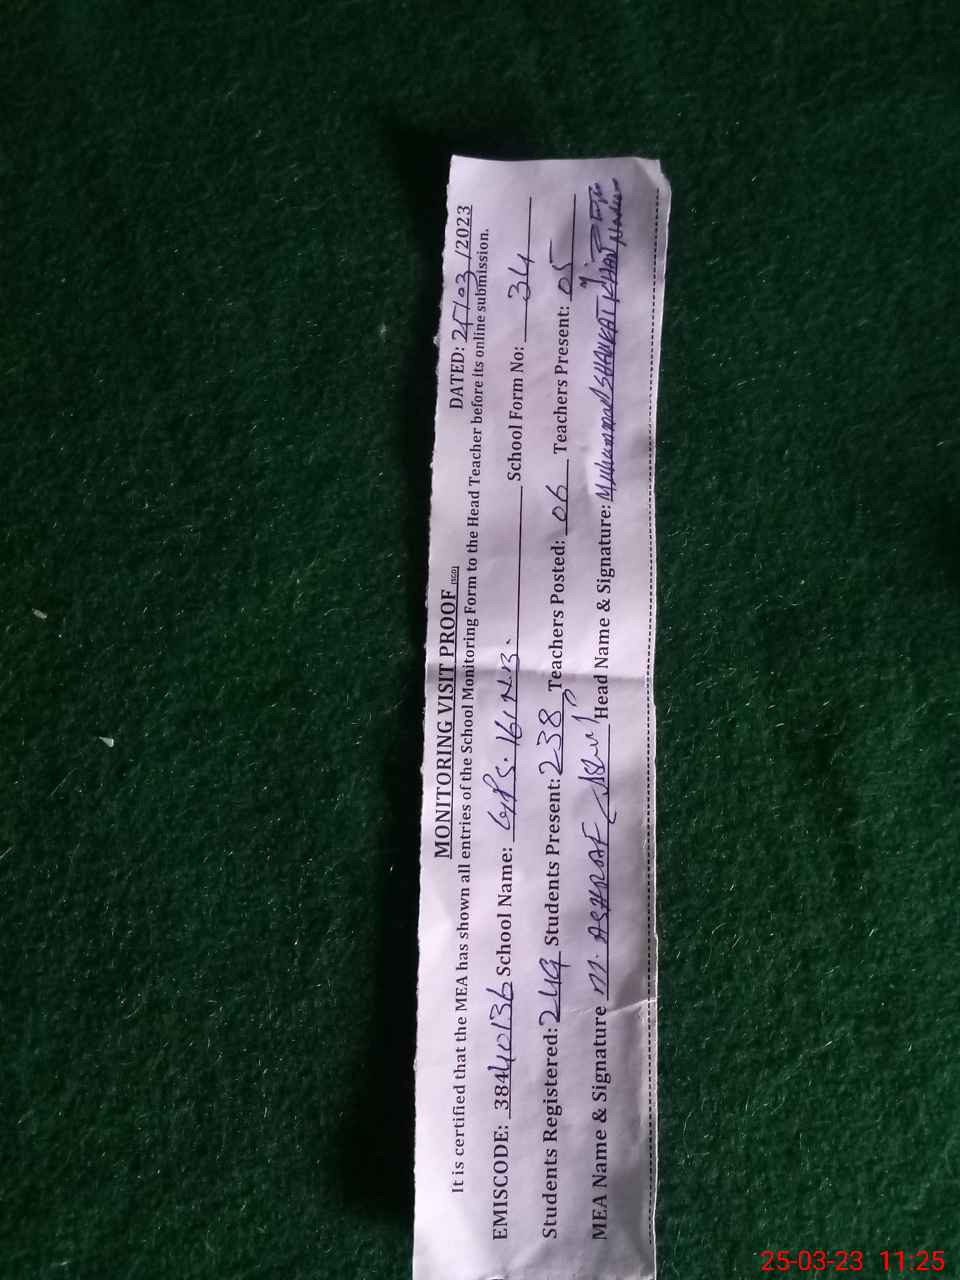 MONITORING VISIT PROOF (SED)
DATED: 25/03/2023
It is certified that the MEA has shown all entries of the School Monitoring Form to the Head Teacher before its online submission.
EMISCODE: 38440136 School Name: GPS. 161 N.B. School Form No: 34
Students Registered: 249 Students Present: 238 Teachers Posted: 06 Teachers Present: 05
MEA Name & Signature M. ASHRAF Head Name & Signature: Muhammad SHAUKAT KHAN
25-03-23 11:25